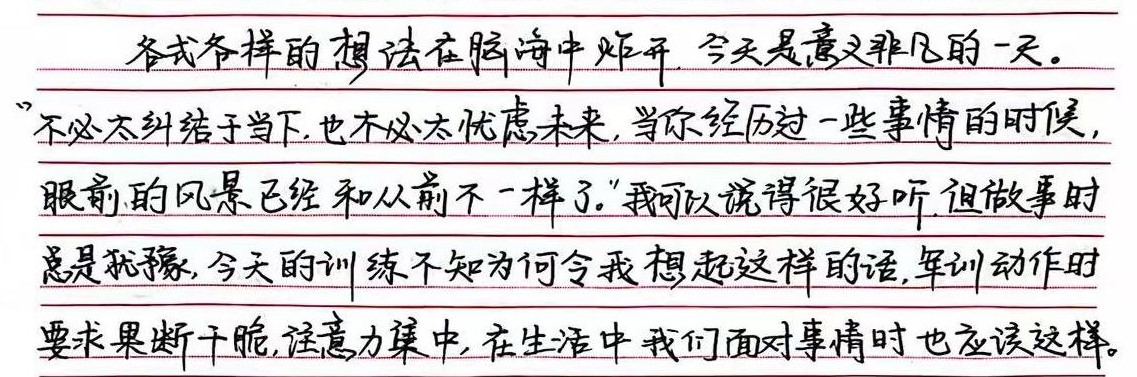 各式各样的想法在脑海中炸开.今天是意义非凡的一天。
"不必太纠结于当下,也不必太忧虑未来,当你经历过一些事情的时候,
眼前的风景已经和从前不一样了."我可以说得很好听.但做事时
总是犹豫,今天的训练不知为何令我想起这样的话,军训动作时
要求果断干脆,注意力集中,在生活中我们面对事情时也应该这样。